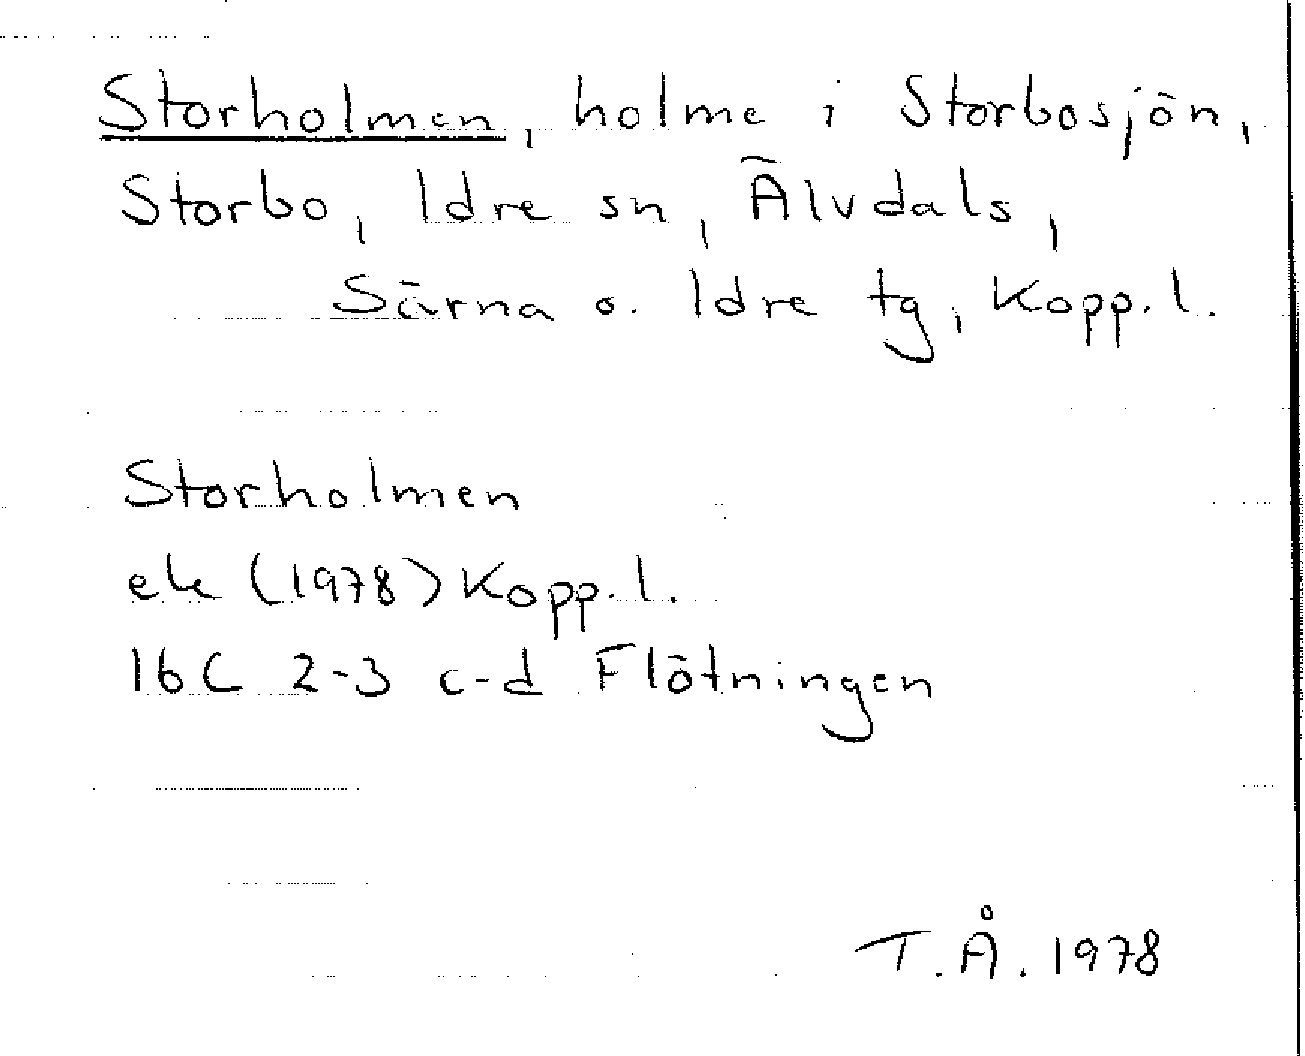 Storholmen, holme i Storbosjön,
Storbo, Idre sn, Älvdals,
Särna o. Idre tg, Kopp. l.
Storholmen
ek (1978) Kopp. l.
16C 2-3 c-d Flötningen
T.Å. 1978